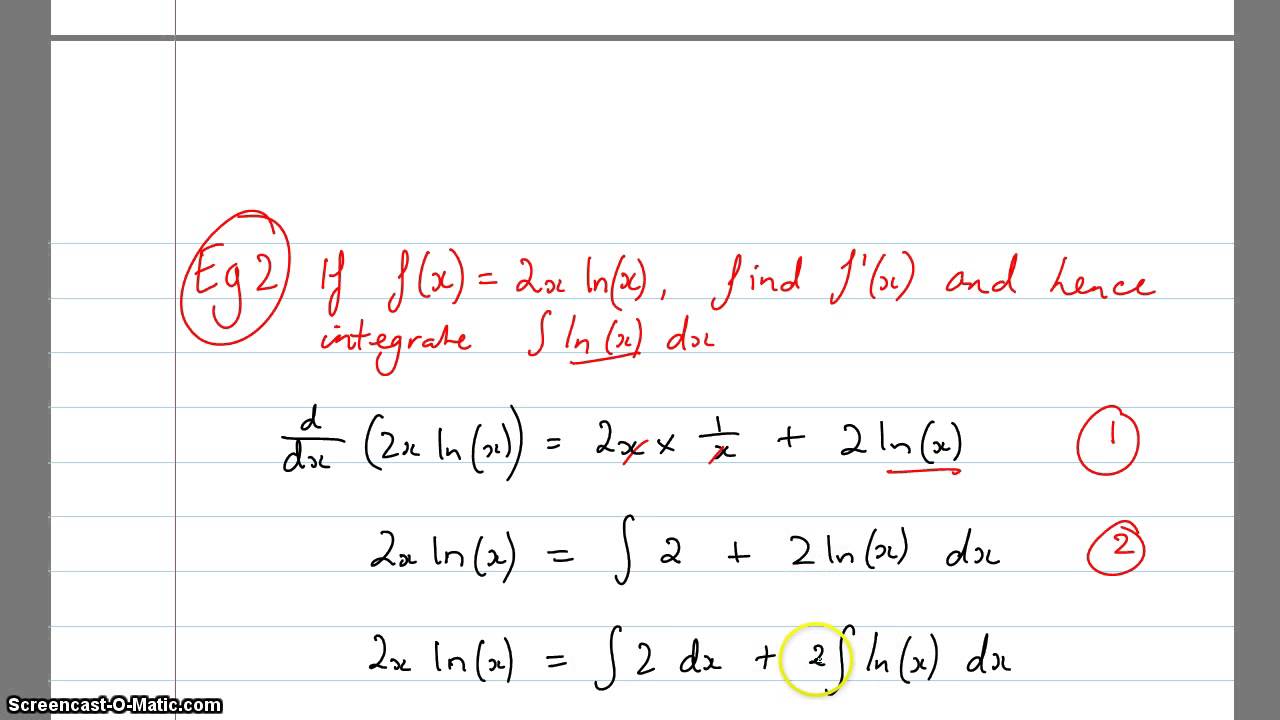 Eg 2 If f(x) = 2x ln(x), find f'(x) and hence
integrate ∫ ln(x) dx
d/dx (2x ln(x)) = 2x × 1/x + 2 ln(x) 1
2x ln(x) = ∫ 2 + 2 ln(x) dx 2
2x ln(x) = ∫ 2 dx + 2 ∫ ln(x) dx
Screencast-O-Matic.com